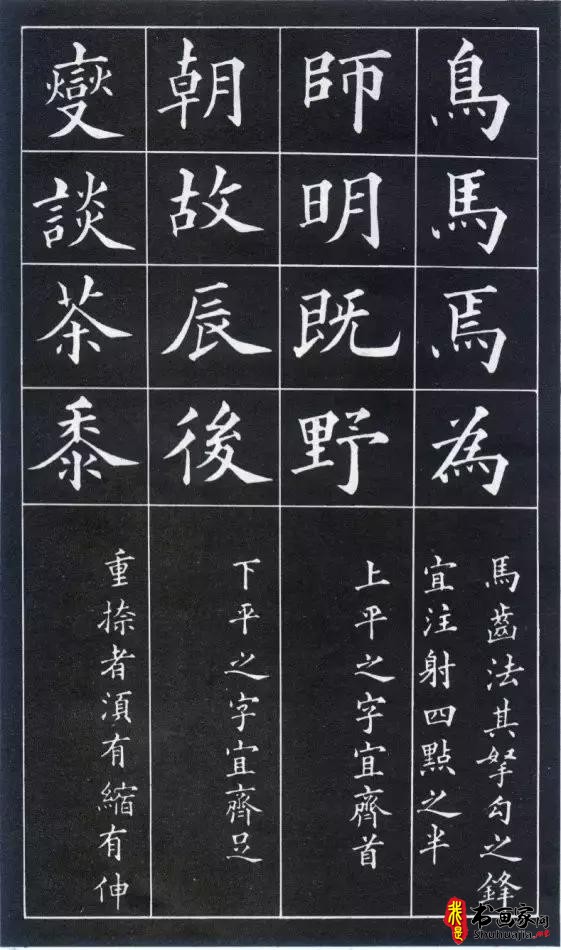 鳥馬焉為
馬齒法其拏勾之鋒
宜注射四點之半
師明既野
上平之字宜齊首
朝故辰後
下平之字宜齊足
變談茶黍
重捺者須有縮有伸
我是书画家网
Shuhuajia.net